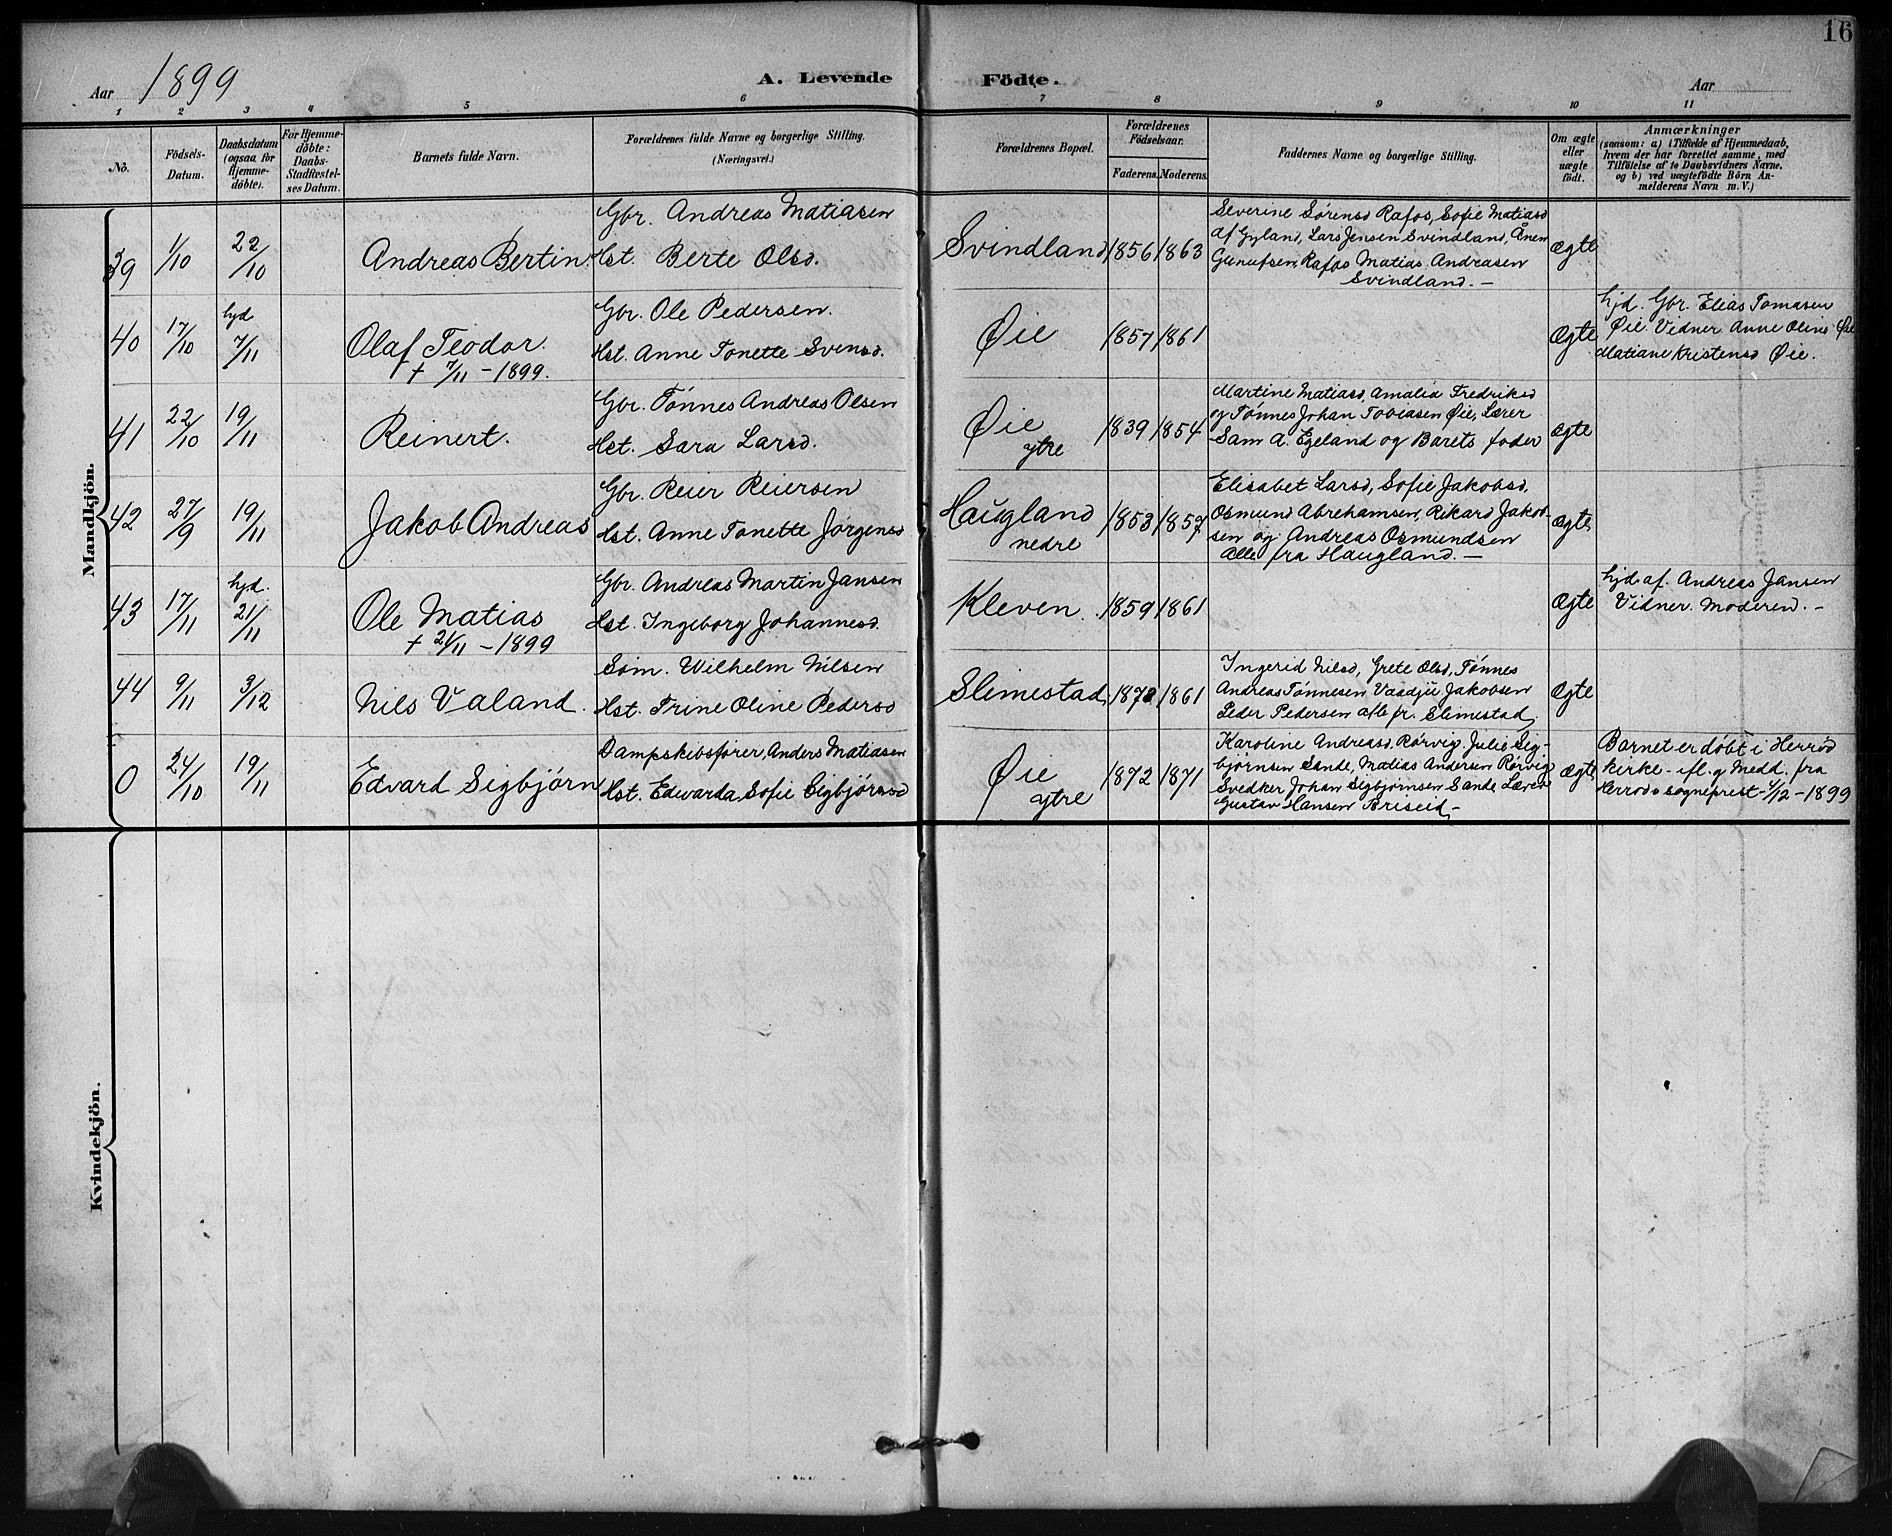 16
Aar 1899
A. Levende Födte.
Aar
1 2 3 4 5 6 7 8 9 10 11
No.
Födsels-
Datum.
Daabsdatum
(ogsaa for
Hjemme-
döbte).
For Hjemme-
döbte:
Daabs-
Stadfæstel-
ses Datum.
Barnets fulde Navn.
Forældrenes fulde Navne og borgerlige Stilling.
(Næringsvei.)
Forældrenes Bopæl.
Forældrenes
Födselsaar.
Faderens. Moderens.
Faddernes Navne og borgerlige Stilling.
Om ægte
eller
uægte
födt.
Anmærkninger
(saasom: a) i Tilfælde af Hjemmedaab,
hvem der har forrettet samme, med
Tilföielse af to Daabsvidners Navne,
og b) ved uægtefödte Börn An-
melderens Navn m. V.)
Mandkjön.
39 1/10 22/10
Andreas Bertin.
Gbr. Andreas Matiasen
Hst. Berte Olsd.
Svindland 1856 1863
Severine Sørensd Rafos, Sofie Matiasd
af Gyland, Lars Jensen Svindland, Ånen
Gunufsen, Rafos Matias Andreasen
Svindland. —
Ægte
40 17/10 hjd 7/11
Olaf Teodor.
+ 7/11 - 1899.
Gbr. Ole Pedersen.
Hst. Anne Tonette Svensd.
Øie 1857 1861
Ægte
hjd. Gbr. Elias Tomasen
Øie. Vidner Anne Oline Øie
Matiane Kristensd Øie.
41 22/10 19/11
Reinert.
Gbr. Tønnes Andreas Olsen
Hst. Sara Larsd.
Øie
ytre
1839 1854
Martine Matiasd, Amalia Fredriksd
og Tønnes Johan Tobiasen Øie, Lærer
Sam A. Egeland og Barets fader
Ægte
42 27/9 19/11
Jakob Andreas
Gbr. Reier Reiersen
Hst. Anne Tonette Jørgensd
Haugland
nedre
1853 1857
Elisabet Larsd, Sofie Jakobsd,
Osmund Abrehamsen, Rikard Jakob-
sen og Andreas Osmundsen
Alle fra Haugland. —
Ægte
43 17/11 hjd. 21/11
Ole Matias
+ 21/11 - 1899
Gbr. Andreas Martin Jansen
Hst. Ingeborg Johannesd.
Kleven. 1859 1861
Ægte
hjd af. Andreas Jansen
Vidner. Moderen. —
44 9/11 3/12
Nils Valand.
Søm. Wilhelm Nilsen
Hst. Trine Oline Pedersd
Slimestad 1861
Ingerid Nilsd, Grete Olsd, Tønnes
Andreas Tønnesen, Jakobsen
Peder Pedersen alle fr. Slimestad
Ægte
0 24/10 19/11
Edvard Sigbjørn
Dampskibsfører, Anders Matiasen
Hst. Edvarda Sofie Sigbjørnsd
Øie
ytre
1872 1871
Karoline Andreasd, Rørvig, Julie Sig-
bjørnsen Sande, Matias Andersen Rørvig
Svedker Johan Sigbjørnsen Sande Lærer
Gustav Hansen Briseid, —
Ægte
Barnet er døbt i Herrød
kirke - ifl. g Medd. fra
Herrøds sogneprest 1/12 - 1899
Kvindekjön.